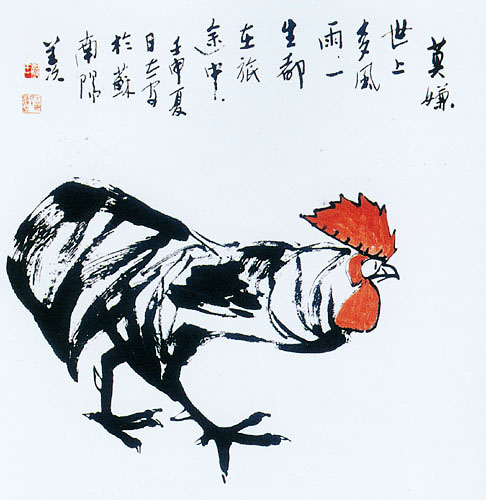 莫嫌
世上
多風
雨一
生都
在旅
途中
壬申夏
日
於蘇
南陽
羡